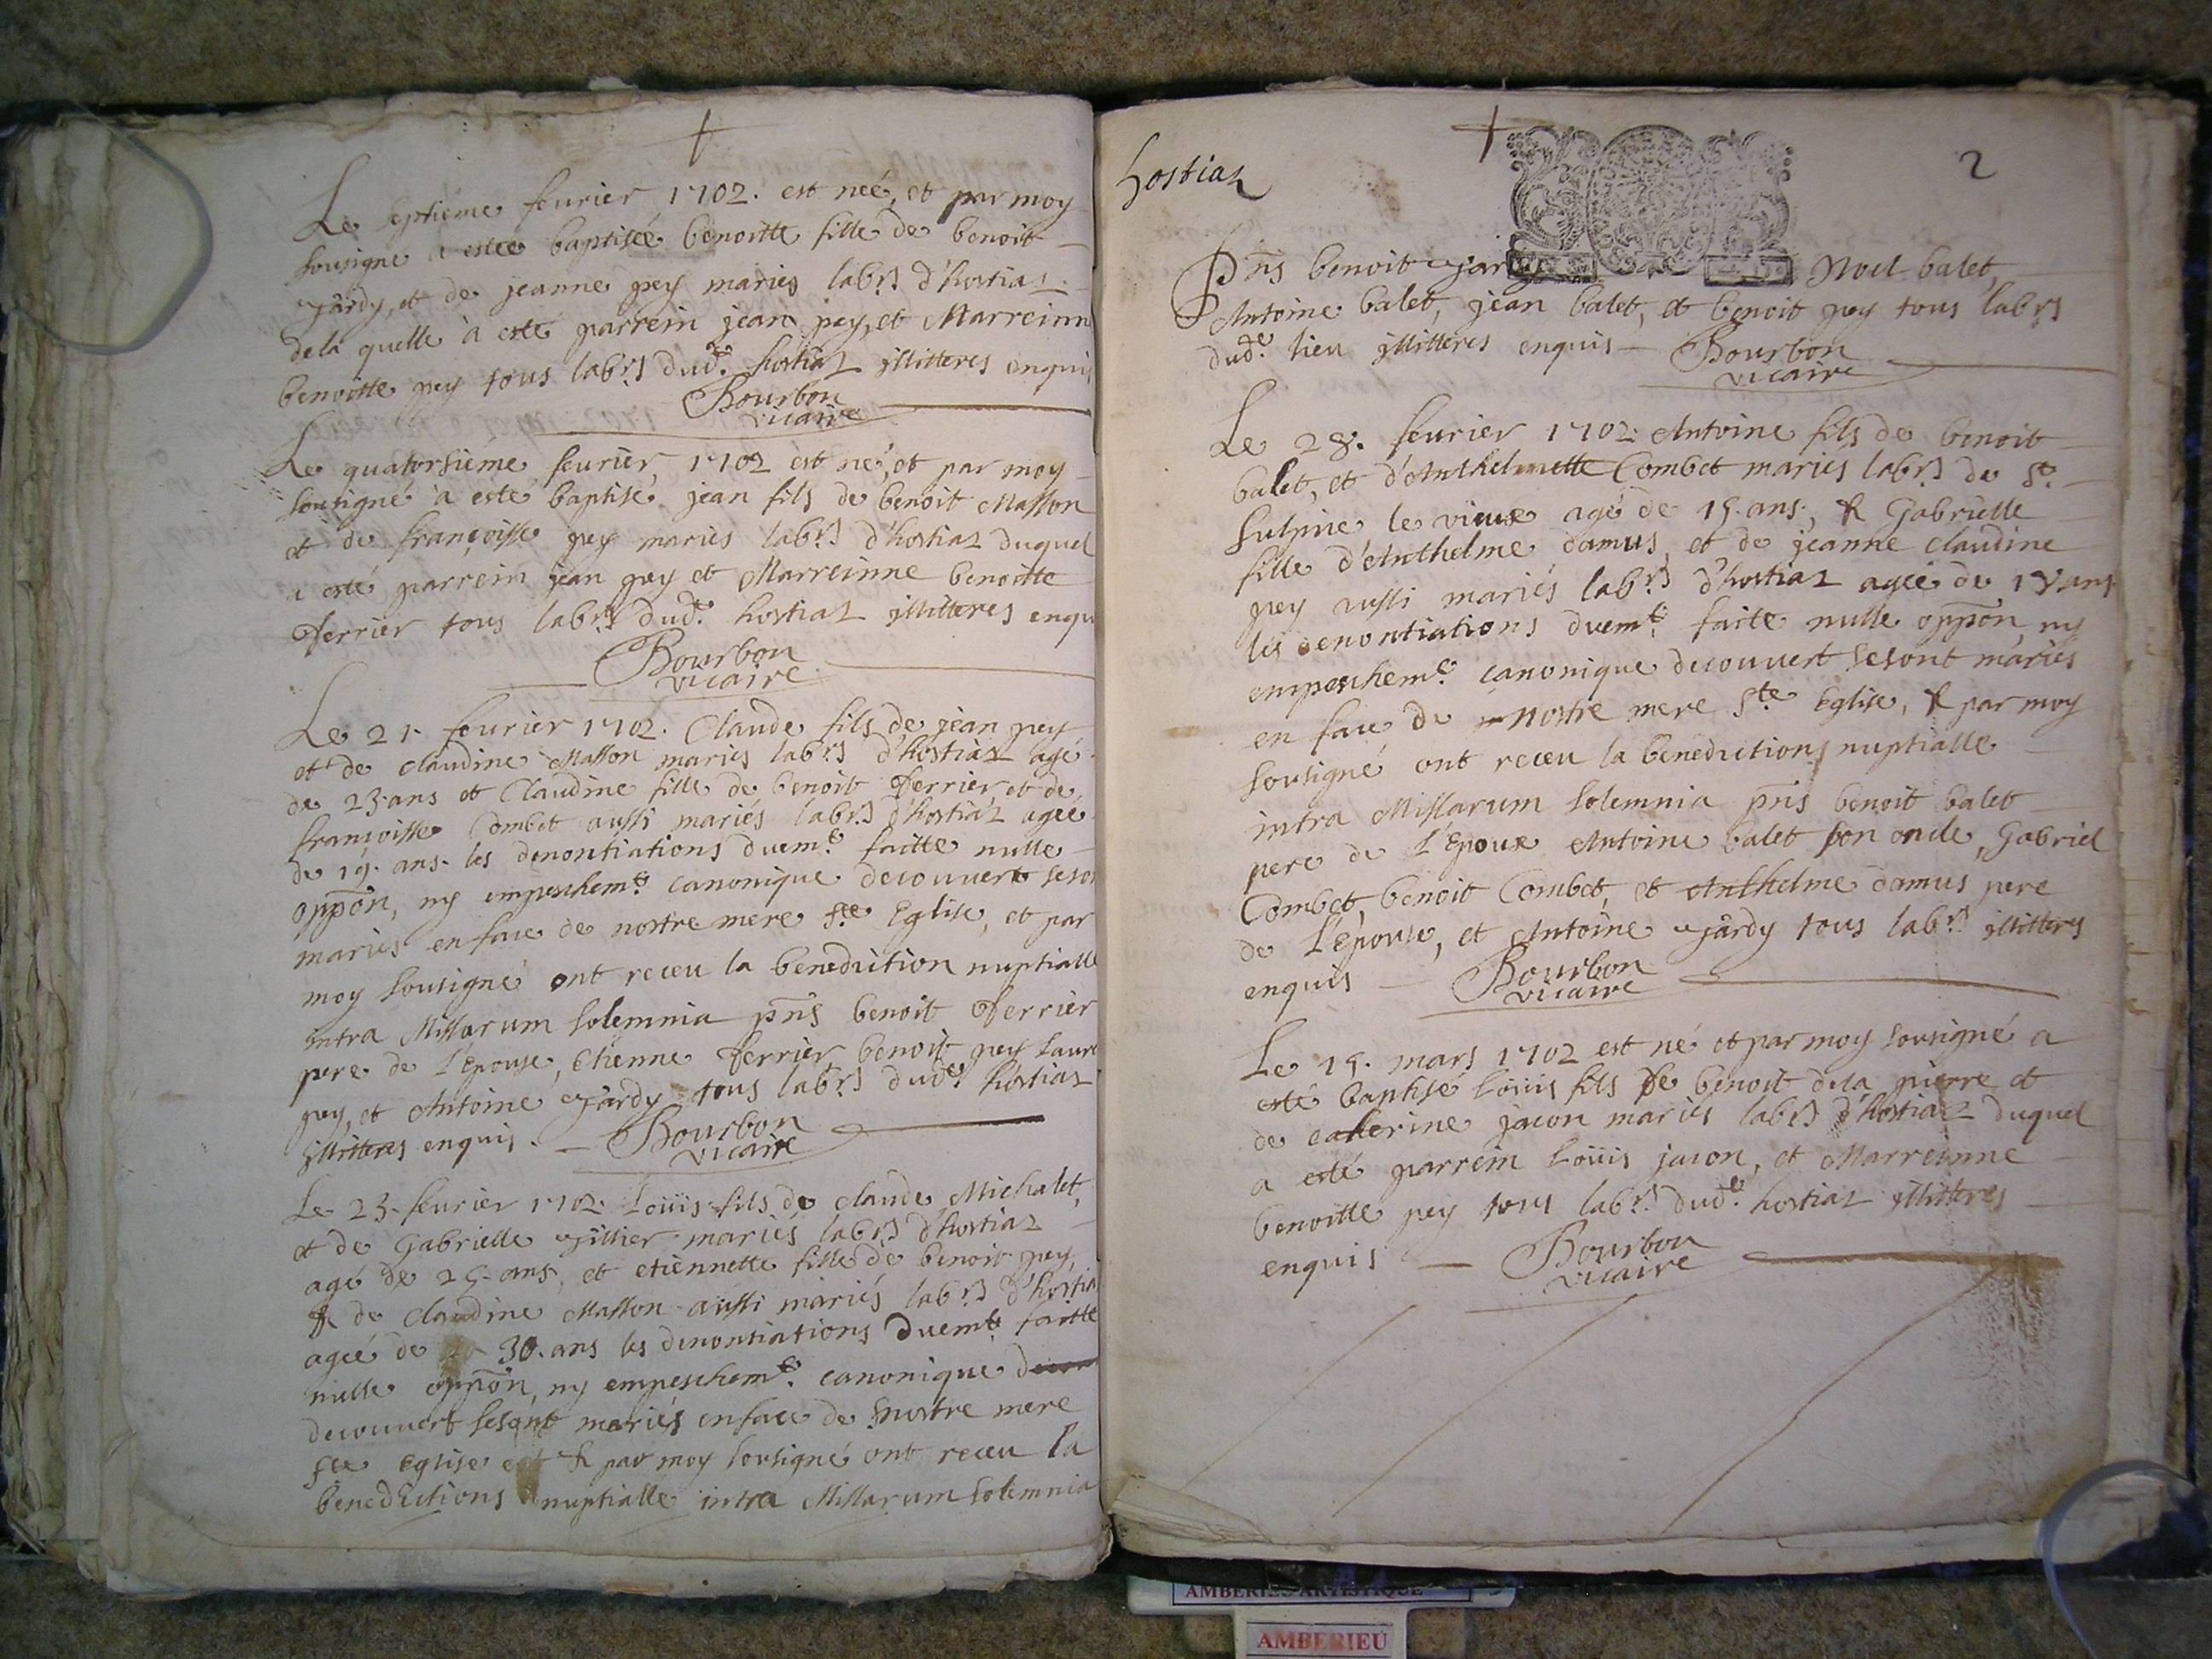 Le septiéme feurier 1702. est neé, et par moy
sousigné a esteé baptiseé benoitte fille de benoit
Jărdy, et de jeanne pey mariés lab.rs d'hostiaz
dela quelle à esté parrein jean pey, et Marreinn
benoitte pey tous lab.rs dud.e hostiaz jllitteres enquis
Bourbon
vicaire
Le quatorsiéme feurier 1702 est né, et par moy
sousigné a esté baptisé jean fils de benoit Masson
et de françoisse pey mariés lab.rs d'hostiaz duquel
a esté parrein jean pey et Marreinne benoitte
ferrier tous lab.rs dud.e hostiaz jllitteres enqu
Bourbon
vicaire
Le 21. feurier 1702. Claude fils de jean pey
et de claudine Masson mariés lab.rs d'hostiaz agé
de 23. ans et Claudine fille de benoit ferrier et de
françoisse Combet aussi mariés lab.rs d'hostiaz ageé
de 19. ans. les denontiations duem.t faitte nulle
oppõn, ny empeschem.t canonique decouuert se so
mariés en face de nostre mere s.te Eglise, et par
moy sousigné ont receu la benediction nuptialle
intra Missarum solemnia pñs benoit ferrier
pere de l'Epouse, Etienne ferrier, benoit pey laure
pey, et Antoine Jărdy tous lab.rs dud.e hostiaz
jllitteres enquis. Bourbon
vicaire
Le 23. feurier 1702. Loüis fils de claude Michalet,
et de Gabrielle Jillier mariés lab.rs d'hostiaz
agé de 25. ans, et etiennette fille de benoit pey,
& de Claudine Masson aussi mariés lab.rs d'hostia
ageé de 30. ans les denontiations duem.t faitte
nulle oppõn, ny empeschem.t canonique
decouuert se sont mariés en face de nostre mere
s.te Eglise & par moy sousigné ont receu la
benedictions nuptialle intra Missarum solemnia
hostiaz
2
Pñs benoit Jărdy Noel balet,
Antoine balet, jean balet, et benoit pey tous lab.rs
dud.e lieu jllitteres enquis Bourbon
vicaire
Le 28. feurier 1702. Antoine fils de benoit
balet, et d'Anthelmette Combet mariés lab.rs de S.t
sulpine le vieux agé de 15. ans, & Gabrielle
fille d'Anthelme damus, et de jeanne claudine
pey aussi mariés lab.rs d'hostiaz ageé de ans
les denontiations duem.t faite nulle oppõn, ny
empeschem.t canonique decouuert se sont mariés
en face de nostre mere s.te Eglise, & par moy
sousigné ont receu la benedictions nuptialle
intra Missarum solemnia pñs benoit balet
pere de l'Epoux Antoine balet son oncle, Gabriel
Combet, benoit Combet, et Anthelme damus pere
de l'Epouse, et Antoine Jărdy tous lab.rs jllitteres
enquis Bourbon
vicaire
Le 15. mars 1702 est né et par moy sousigné a
esté baptisé Loüis fils de benoit dela pierre et
de catherine jacon mariés lab.rs d'hostiaz duquel
a esté parrein Loüis jacon, et Marreinne
benoitte pey tous lab.rs dud.e hostiaz jllitteres
enquis Bourbon
vicaire
AMBERIEU ARTISTIQUE
AMBERIEU